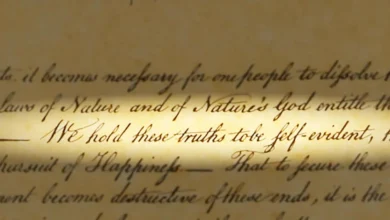 it becomes necessary for one people to dissolve
laws of Nature and of Nature's God entitle
— We hold these truths to be self-evident,
pursuit of Happiness. — That to secure these
becomes destructive of these ends, it is the